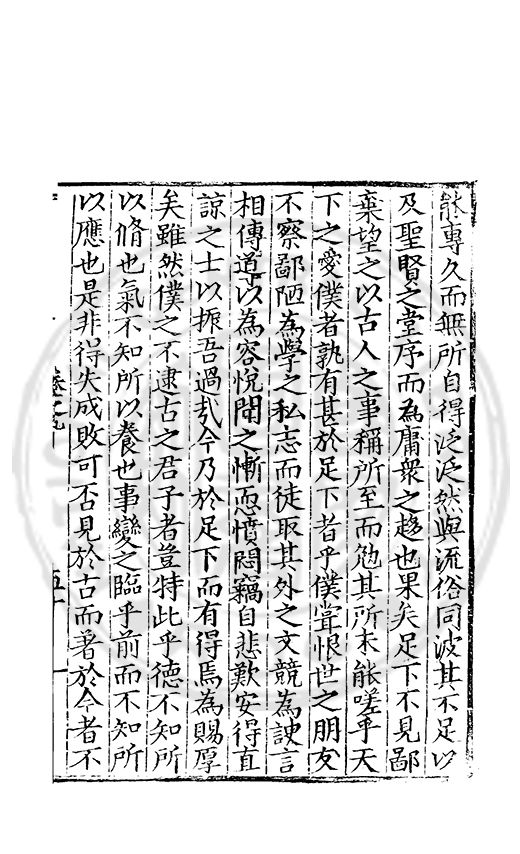 能專久而無所自得泛泛然與流俗同波其不足以
及聖賢之堂序而為庸衆之趨也果矣足下不見鄙
棄望之以古人之事稱所至而勉其所未能嗟乎天
下之愛僕者孰有甚於足下者乎僕嘗恨世之朋友
不察鄙陋為學之私志而徒取其外之文競為諛言
相傳道以為容悅聞之慚恧憤悶竊自悲歎安得直
諒之士以振吾過哉今乃於足下而有得焉為賜厚
矣雖然僕之不逮古之君子者豈特此乎德不知所
以脩也氣不知所以養也事變之臨乎前而不知所
以應也是非得失成敗可否見於古而著於今者不
卷之九
五十一